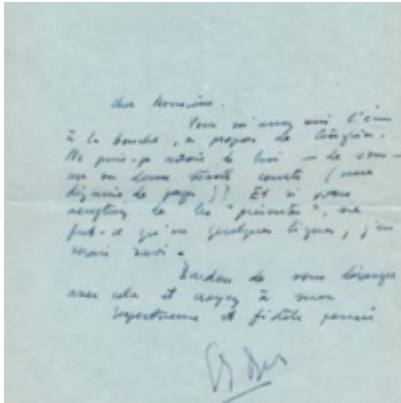 Cher Monsieur.
Vous m'avez mis l'eau
à la bouche, à propos de
Ne puis-je avoir de lui — de vous —
un ou deux courts (une
dizaine de pages)! Et si vous
acceptiez de les "présenter", ne
fût-ce qu'en quelques lignes, j'en
serais ravi.
Pardon de vous déranger
avec cela et croyez à mon
respectueuse et fidèle pensée